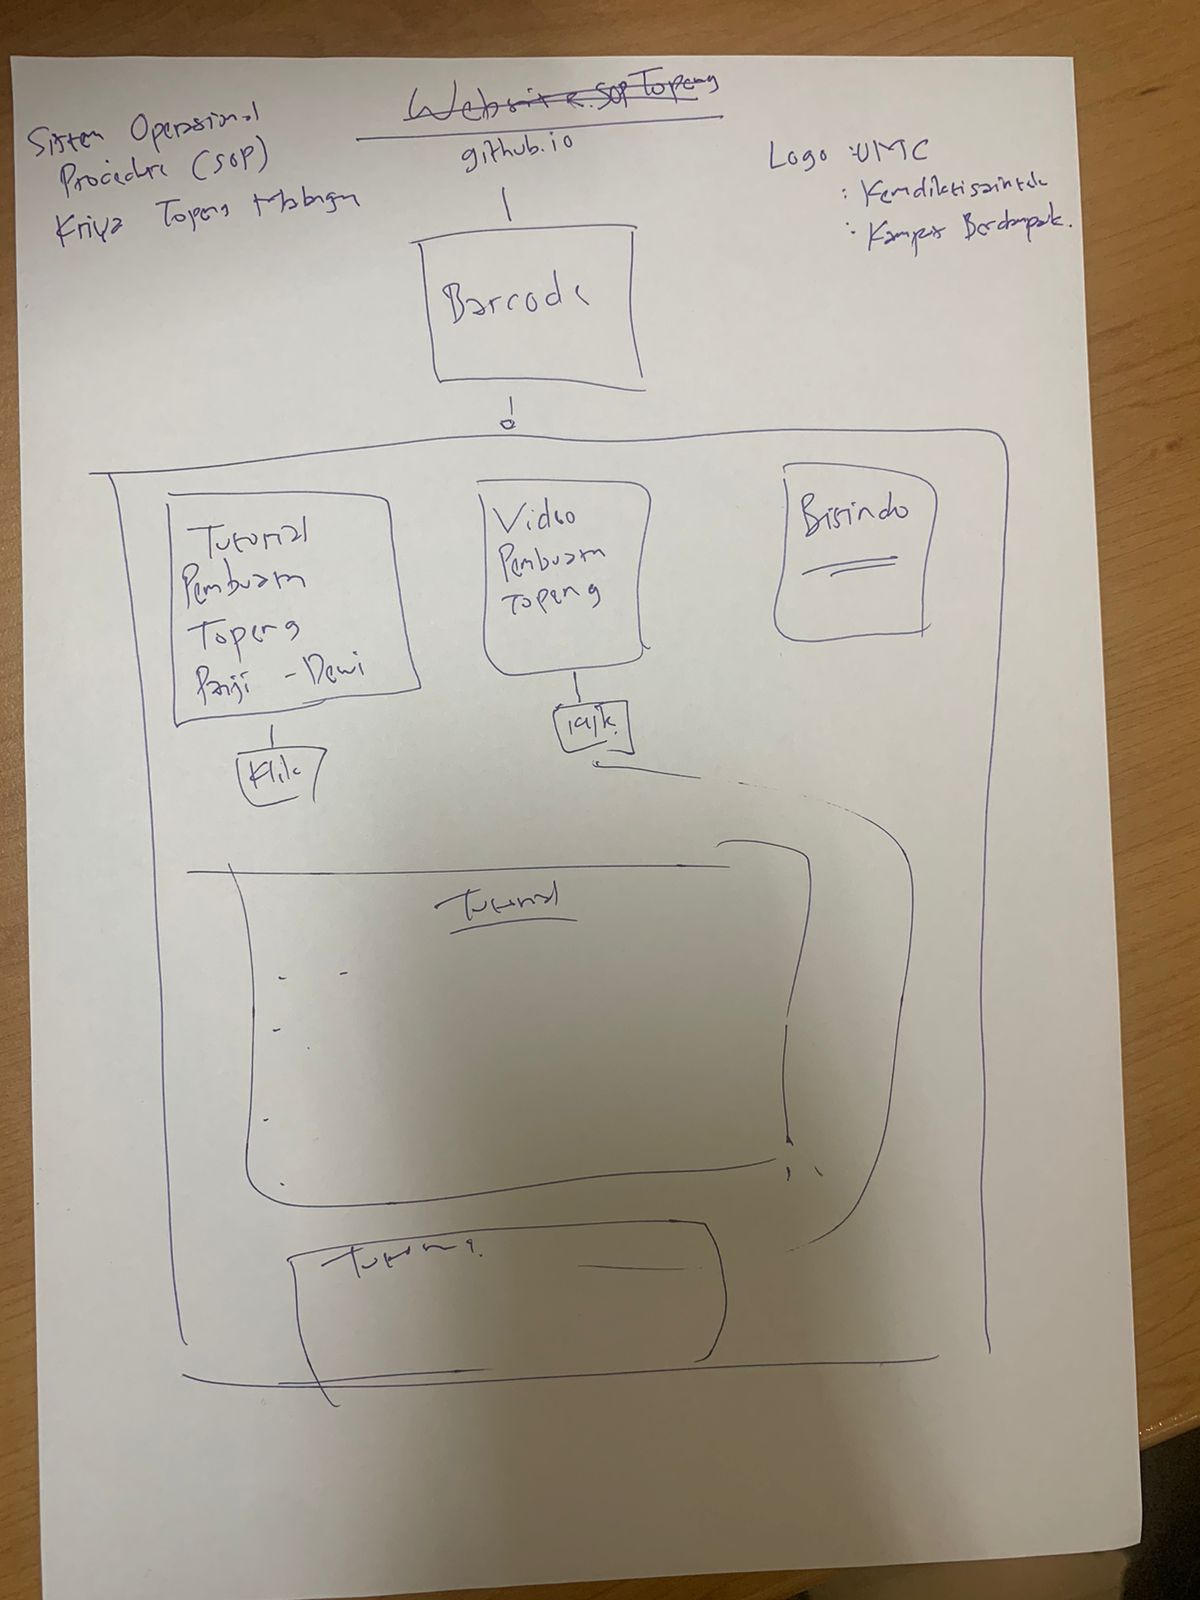 Sistem Operasional
Procedure (SOP)
Kriya Topeng
Website.SOPTopeng
github.io
Logo :UMC
: Kemdiktisaintek
: Kampus Berdampak.
Barcode
Tutorial
Pembuatan
Topeng
Panji - Dewi
Klik
Video
Pembuatan
Topeng
Bisindo
Tutorial